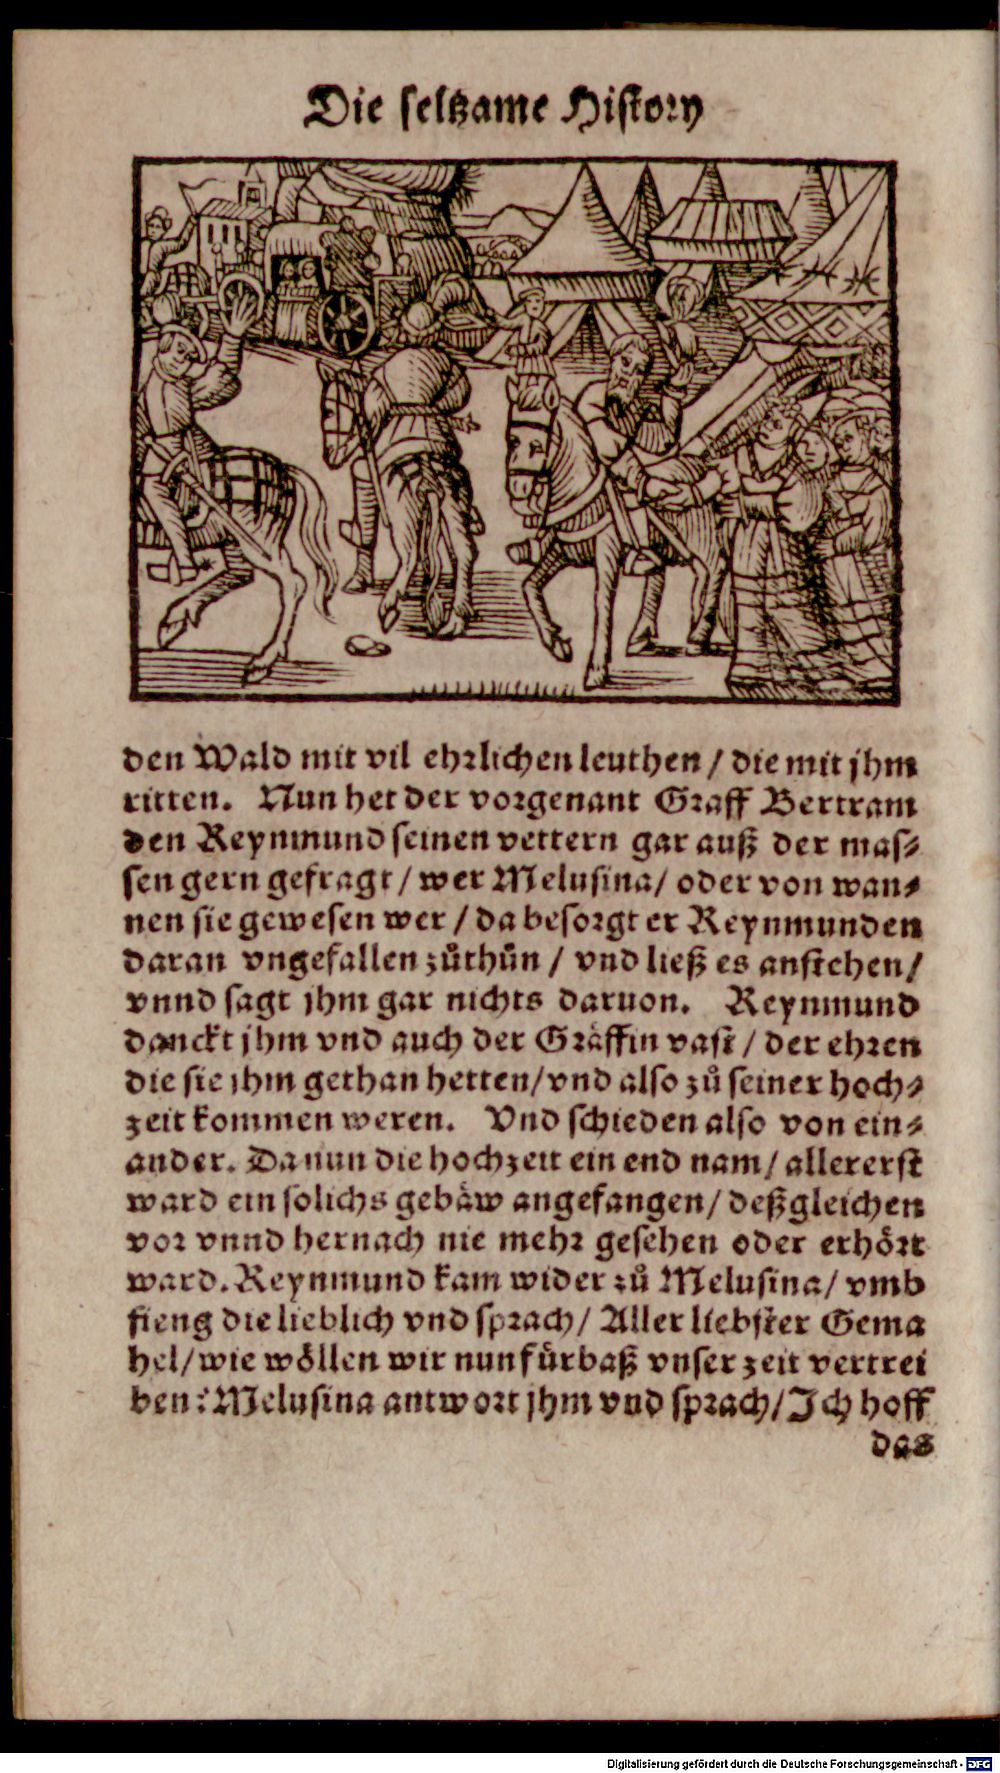 Die seltzame History
den Wald mit vil ehrlichen leuthen / die mit jhm
ritten. Nun het der vorgenant Graff Bertram
den Reynmund seinen vettern gar auß der mas⸗
sen gern gefragt / wer Melusina / oder von wan⸗
nen sie gewesen wer / da besorgt er Reynmunden
daran vngefallen zůthůn / vnd ließ es anstehen /
vnnd sagt jhm gar nichts daruon. Reynmund
danckt jhm vnd auch der Gräffin vast / der ehren
die sie jhm gethan hetten / vnd also zů seiner hoch⸗
zeit kommen weren. Vnd schieden also von ein⸗
ander. Da nun die hochzeit ein end nam / allererst
ward ein solichs gebäw angefangen / deßgleichen
vor vnnd hernach nie mehr gesehen oder erhört
ward. Reynmund kam wider zů Melusina / vmb
fieng die lieblich vnd sprach / Aller liebster Gema
hel / wie wöllen wir nun fürbaß vnser zeit vertrei
ben? Melusina antwort jhm vnd sprach / Ich hoff
das
Digitalisierung gefördert durch die Deutsche Forschungsgemeinschaft - DFG